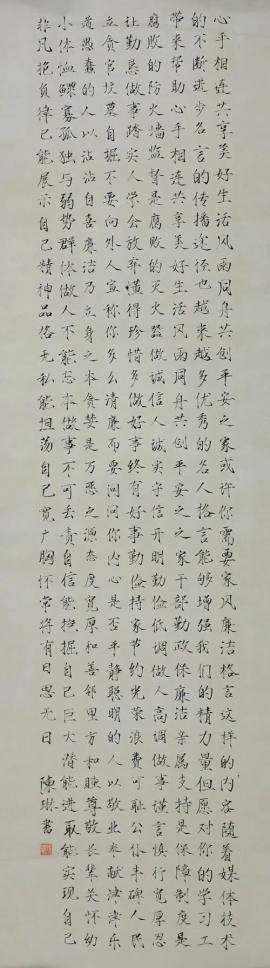 心手相连共享美好生活风雨同舟共创平安之家或许你需要家风廉洁格言这样的内容随着媒体技术
的不断进步名言的传播途径也越来越多优秀的名人格言能够增强我们的精力量但愿对你的学习工
带来帮助心手相连共享美好生活风雨同舟共创平安之家干部勤政保廉洁亲属支持是保障制度是
腐败的防火墙监督是腐败的灭火器做诚信人诚实守信开明勤俭低调做人高调做事谨言慎行宽厚忍
让勤恳做事踏实人学会放弃懂得珍惜多做好事终有好事勤俭持家节约光荣浪费可耻公仆丰碑人民
立贪官坟墓自掘不要向外人宣称你多么清廉而要问问你内心是否平静聪明的人以敬业奉献津津乐
道愚蠢的人以沾沾自喜廉洁乃立身之本贪婪是万恶之源态度宽厚和善邻里方和睦尊敬长辈关怀幼
小体恤鳏寡孤独与弱势群体做人不能忘本做事不可丢责自信能挖掘自己巨大潜能进取能实现自己
非凡抱负律己能展示自己精神品格无私能坦荡自己宽广胸怀常将有日思无日 陈琳书